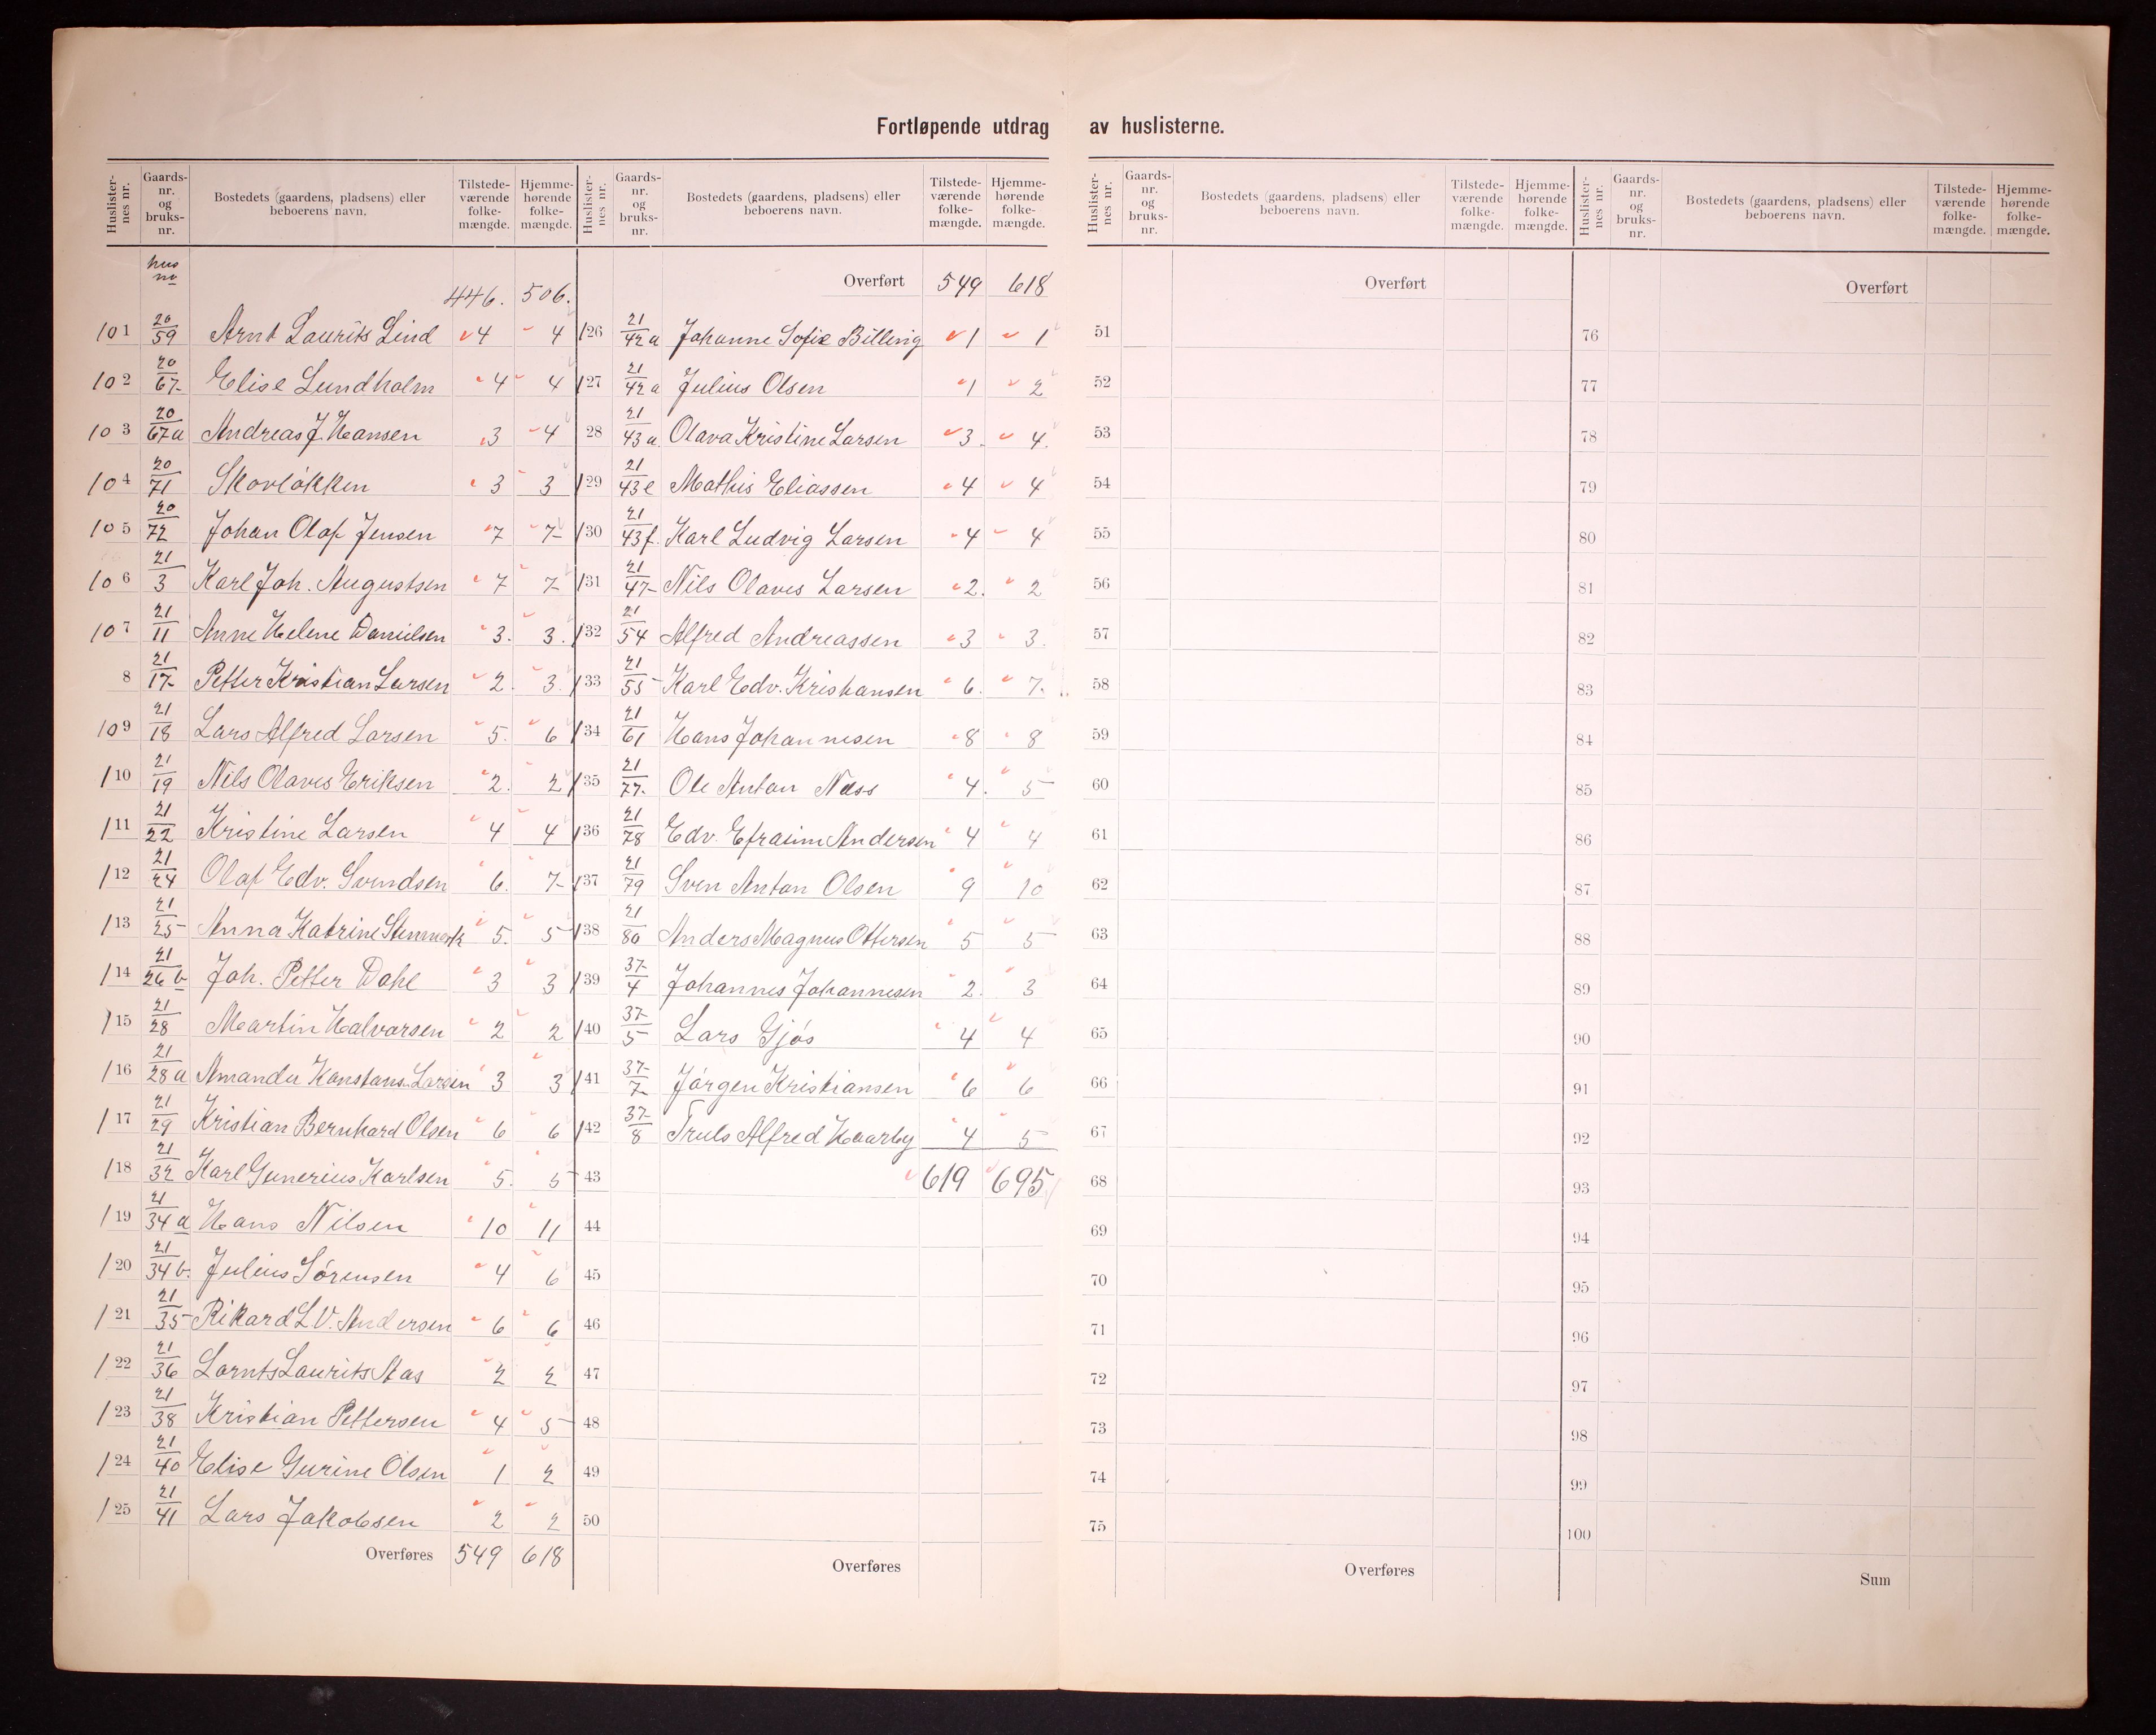 Fortløpende utdrag av huslisterne.
Huslister-nes nr. Gaards-nr. og bruks-nr. Bostedets (gaardens, pladsens) eller beboerens navn. Tilstede-værende folke-mængde. Hjemme-hørende folke-mængde.
hus no
446. 506.
101 20/59 Arnt Laurits Lind 4 4
102 20/67 Elise Lundholm 4 4
103 20/67a Andreas J. Hansen 3 4
104 20/71 Skovløkken 3 3
105 20/72 Johan Olaf Jensen 7 7
106 21/3 Karl Joh. Augustsen 7 7
107 21/11 Anne Helene Danielsen 3. 3.
8 21/17 Petter Kristian Larsen 2. 3.
109 21/18 Lars Alfred Larsen 5. 6
110 21/19 Nils Olavus Eriksen 2. 2
111 21/22 Kristine Larsen 4 4
112 21/24 Olaf Edv. Svendsen 6. 7
113 21/25 Anna Katrine Stenmerk 5. 5
114 21/26b Joh. Petter Dahl 3 3
115 21/28 Martin Halvorsen 2 2
116 21/28a Amanda Konstanse Larsen 3 3
117 21/29 Kristian Bernhard Olsen 6 6
118 21/32 Karl Gunerius Karlsen 5. 5
119 21/34a Hans Nilsen 10 11
120 21/34b. Julius Sørensen 4 6
121 21/35 Rikard L.V. Andersen 6 6
122 21/36 Lornts Laurits Aas 2 2
123 21/38 Kristian Pettersen 4 5
124 21/40 Elise Gurine Olsen 1 2
125 21/41 Lars Jakobsen 2 2
Overføres 549 618
Huslister-nes nr. Gaards-nr. og bruks-nr. Bostedets (gaardens, pladsens) eller beboerens navn. Tilstede-værende folke-mængde. Hjemme-hørende folke-mængde.
Overført 549 618
126 21/42a Johanne Sofie Billing 1 1
127 21/42a Julius Olsen 1 2
28 21/43a. Olava Kristine Larsen 3. 4.
129 21/43e Mathis Eliassen 4 4
130 21/43f. Karl Ludvig Larsen 4 4
131 21/47 Nils Olaves Larsen 2. 2
132 21/54 Alfred Andreassen 3 3.
133 21/55 Karl Edv. Kristiansen 6. 7.
134 21/61 Hans Johannesen 8 8
135 21/77. Ole Anton Næss 4. 5
136 21/78 Edv. Efraim Andersen 4 4
137 21/79 Sven Anton Olsen 9 10
138 21/80 Anders Magnus Ottersen 5 5
139 37/4 Johannes Johannesen 2. 3
140 37/5 Lars Gjøs 4 4
141 37/7 Jørgen Kristiansen 6 6
142 37/8 Truls Alfred Haarby 4 5
43 619 695
44
45
46
47
48
49
50
Overføres
Huslister-nes nr. Gaards-nr. og bruks-nr. Bostedets (gaardens, pladsens) eller beboerens navn. Tilstede-værende folke-mængde. Hjemme-hørende folke-mængde.
Overført
51
52
53
54
55
56
57
58
59
60
61
62
63
64
65
66
67
68
69
70
71
72
73
74
75
Overføres
Huslister-nes nr. Gaards-nr. og bruks-nr. Bostedets (gaardens, pladsens) eller beboerens navn. Tilstede-værende folke-mængde. Hjemme-hørende folke-mængde.
Overført
76
77
78
79
80
81
82
83
84
85
86
87
88
89
90
91
92
93
94
95
96
97
98
99
100
Sum